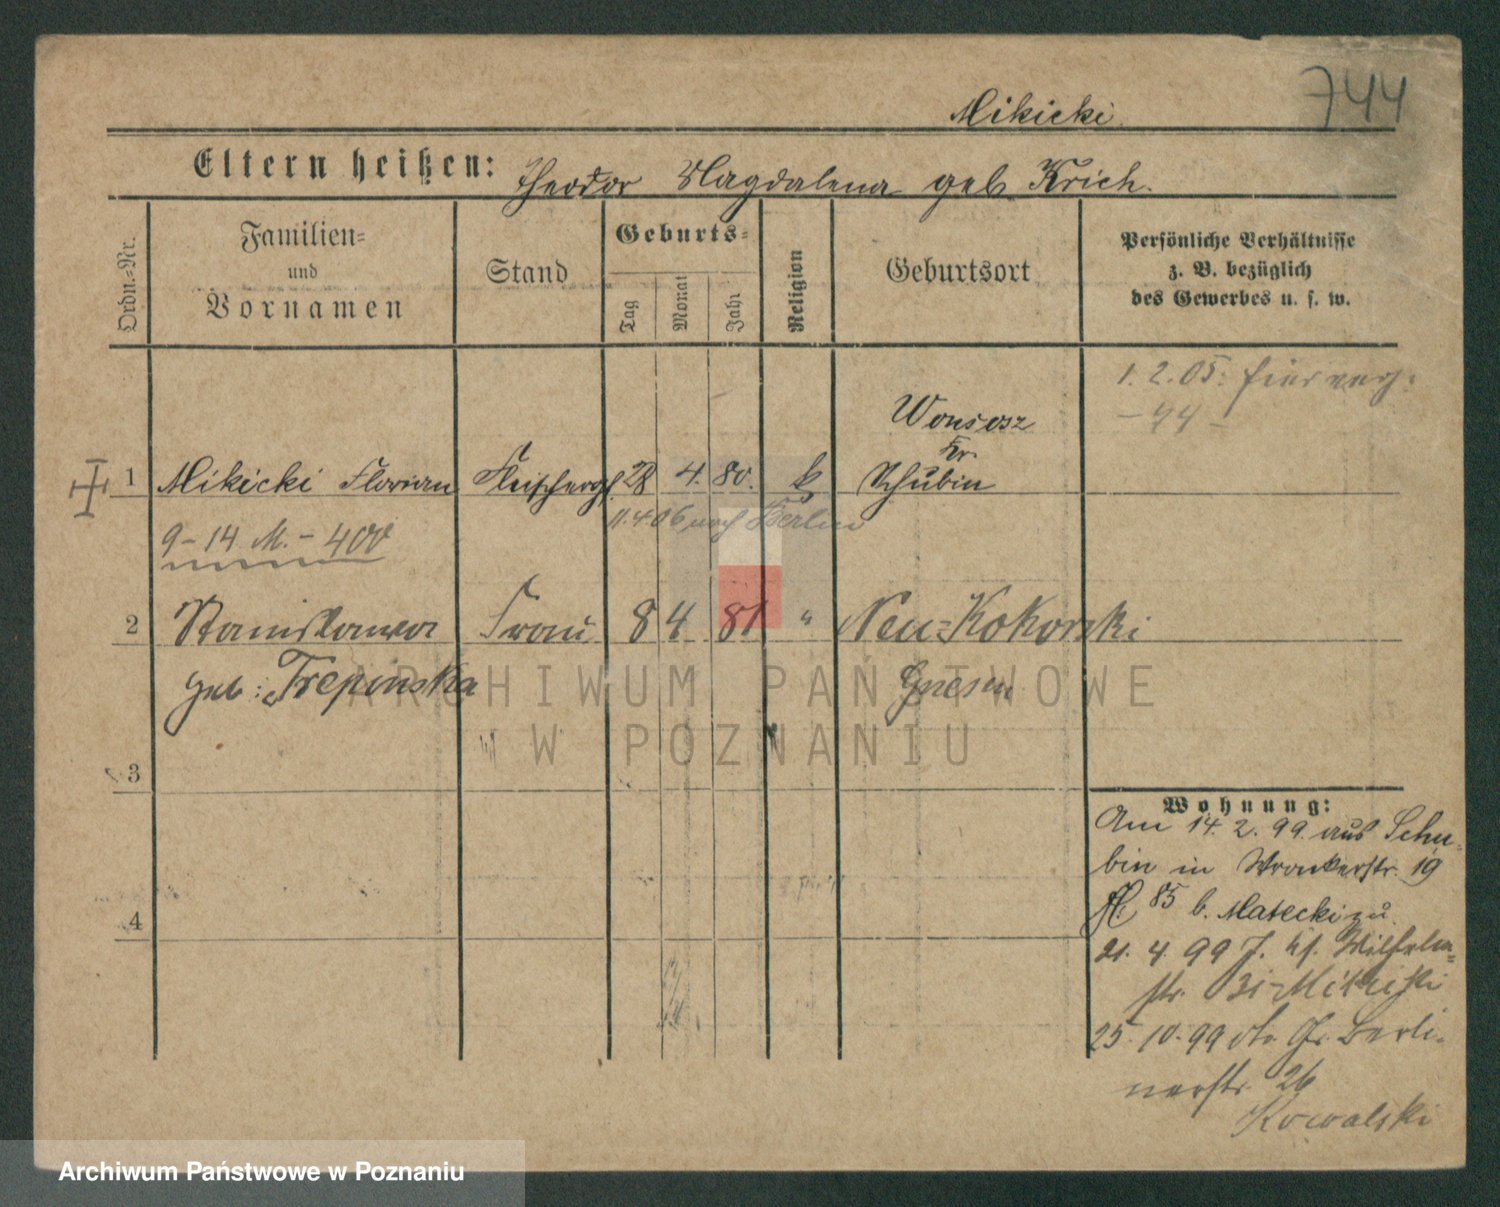 744
Mikicki
Eltern heißen: Theodor Magdalena geb Krich.
Ordn.=Nr.
Familien=
und
Vornamen
Stand
Geburts=
Tag
Monat
Jahr
Religion
Geburtsort
Persönliche Verhältnisse
z. B. bezüglich
des Gewerbes u. s. w.
1. 2. 05.
- 94 -
Wonsosz
Kr.
1 Mikicki Florian Fleischergs 28 4. 80. k Schubin
11.4.06 nach Berlin
9 - 14 M. - 400
2 Stanislawa Frau 8 4 81 " Neu=Kokorski
geb: Trepinska Gnesen
ARCHIWUM PAŃSTWOWE
W POZNANIU
3
4
Wohnung:
Am 14. 2. 99. aus Schu=
bin in Wronkerstr. 19
85 b. Matecki zu.
21. 4. 99 Wilhelm=
str.
25. 10. 99 Gr. Berli=
nerstr. 26
Kowalski
Archiwum Państwowe w Poznaniu